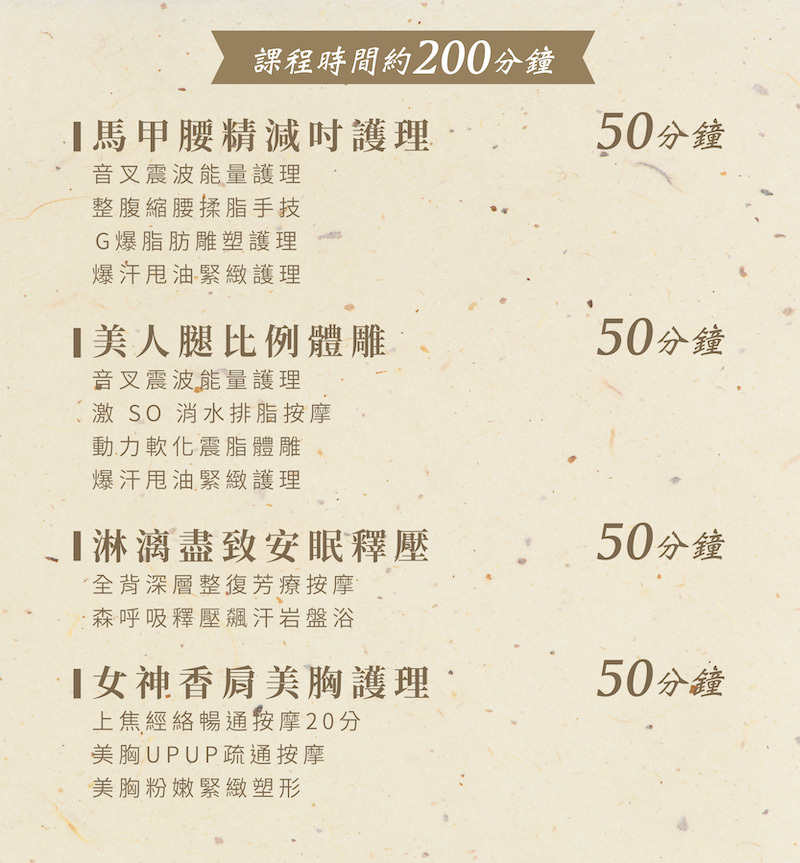 課程時間約200分鐘
馬甲腰精減吋護理 50分鐘
音叉震波能量護理
整腹縮腰揉脂手技
G爆脂肪雕塑護理
爆汗甩油緊緻護理
美人腿比例體雕 50分鐘
音叉震波能量護理
激 SO 消水排脂按摩
動力軟化震脂體雕
爆汗甩油緊緻護理
淋漓盡致安眠釋壓 50分鐘
全背深層整復芳療按摩
森呼吸釋壓飆汗岩盤浴
女神香肩美胸護理 50分鐘
上焦經絡暢通按摩20分
美胸UPUP疏通按摩
美胸粉嫩緊緻塑形